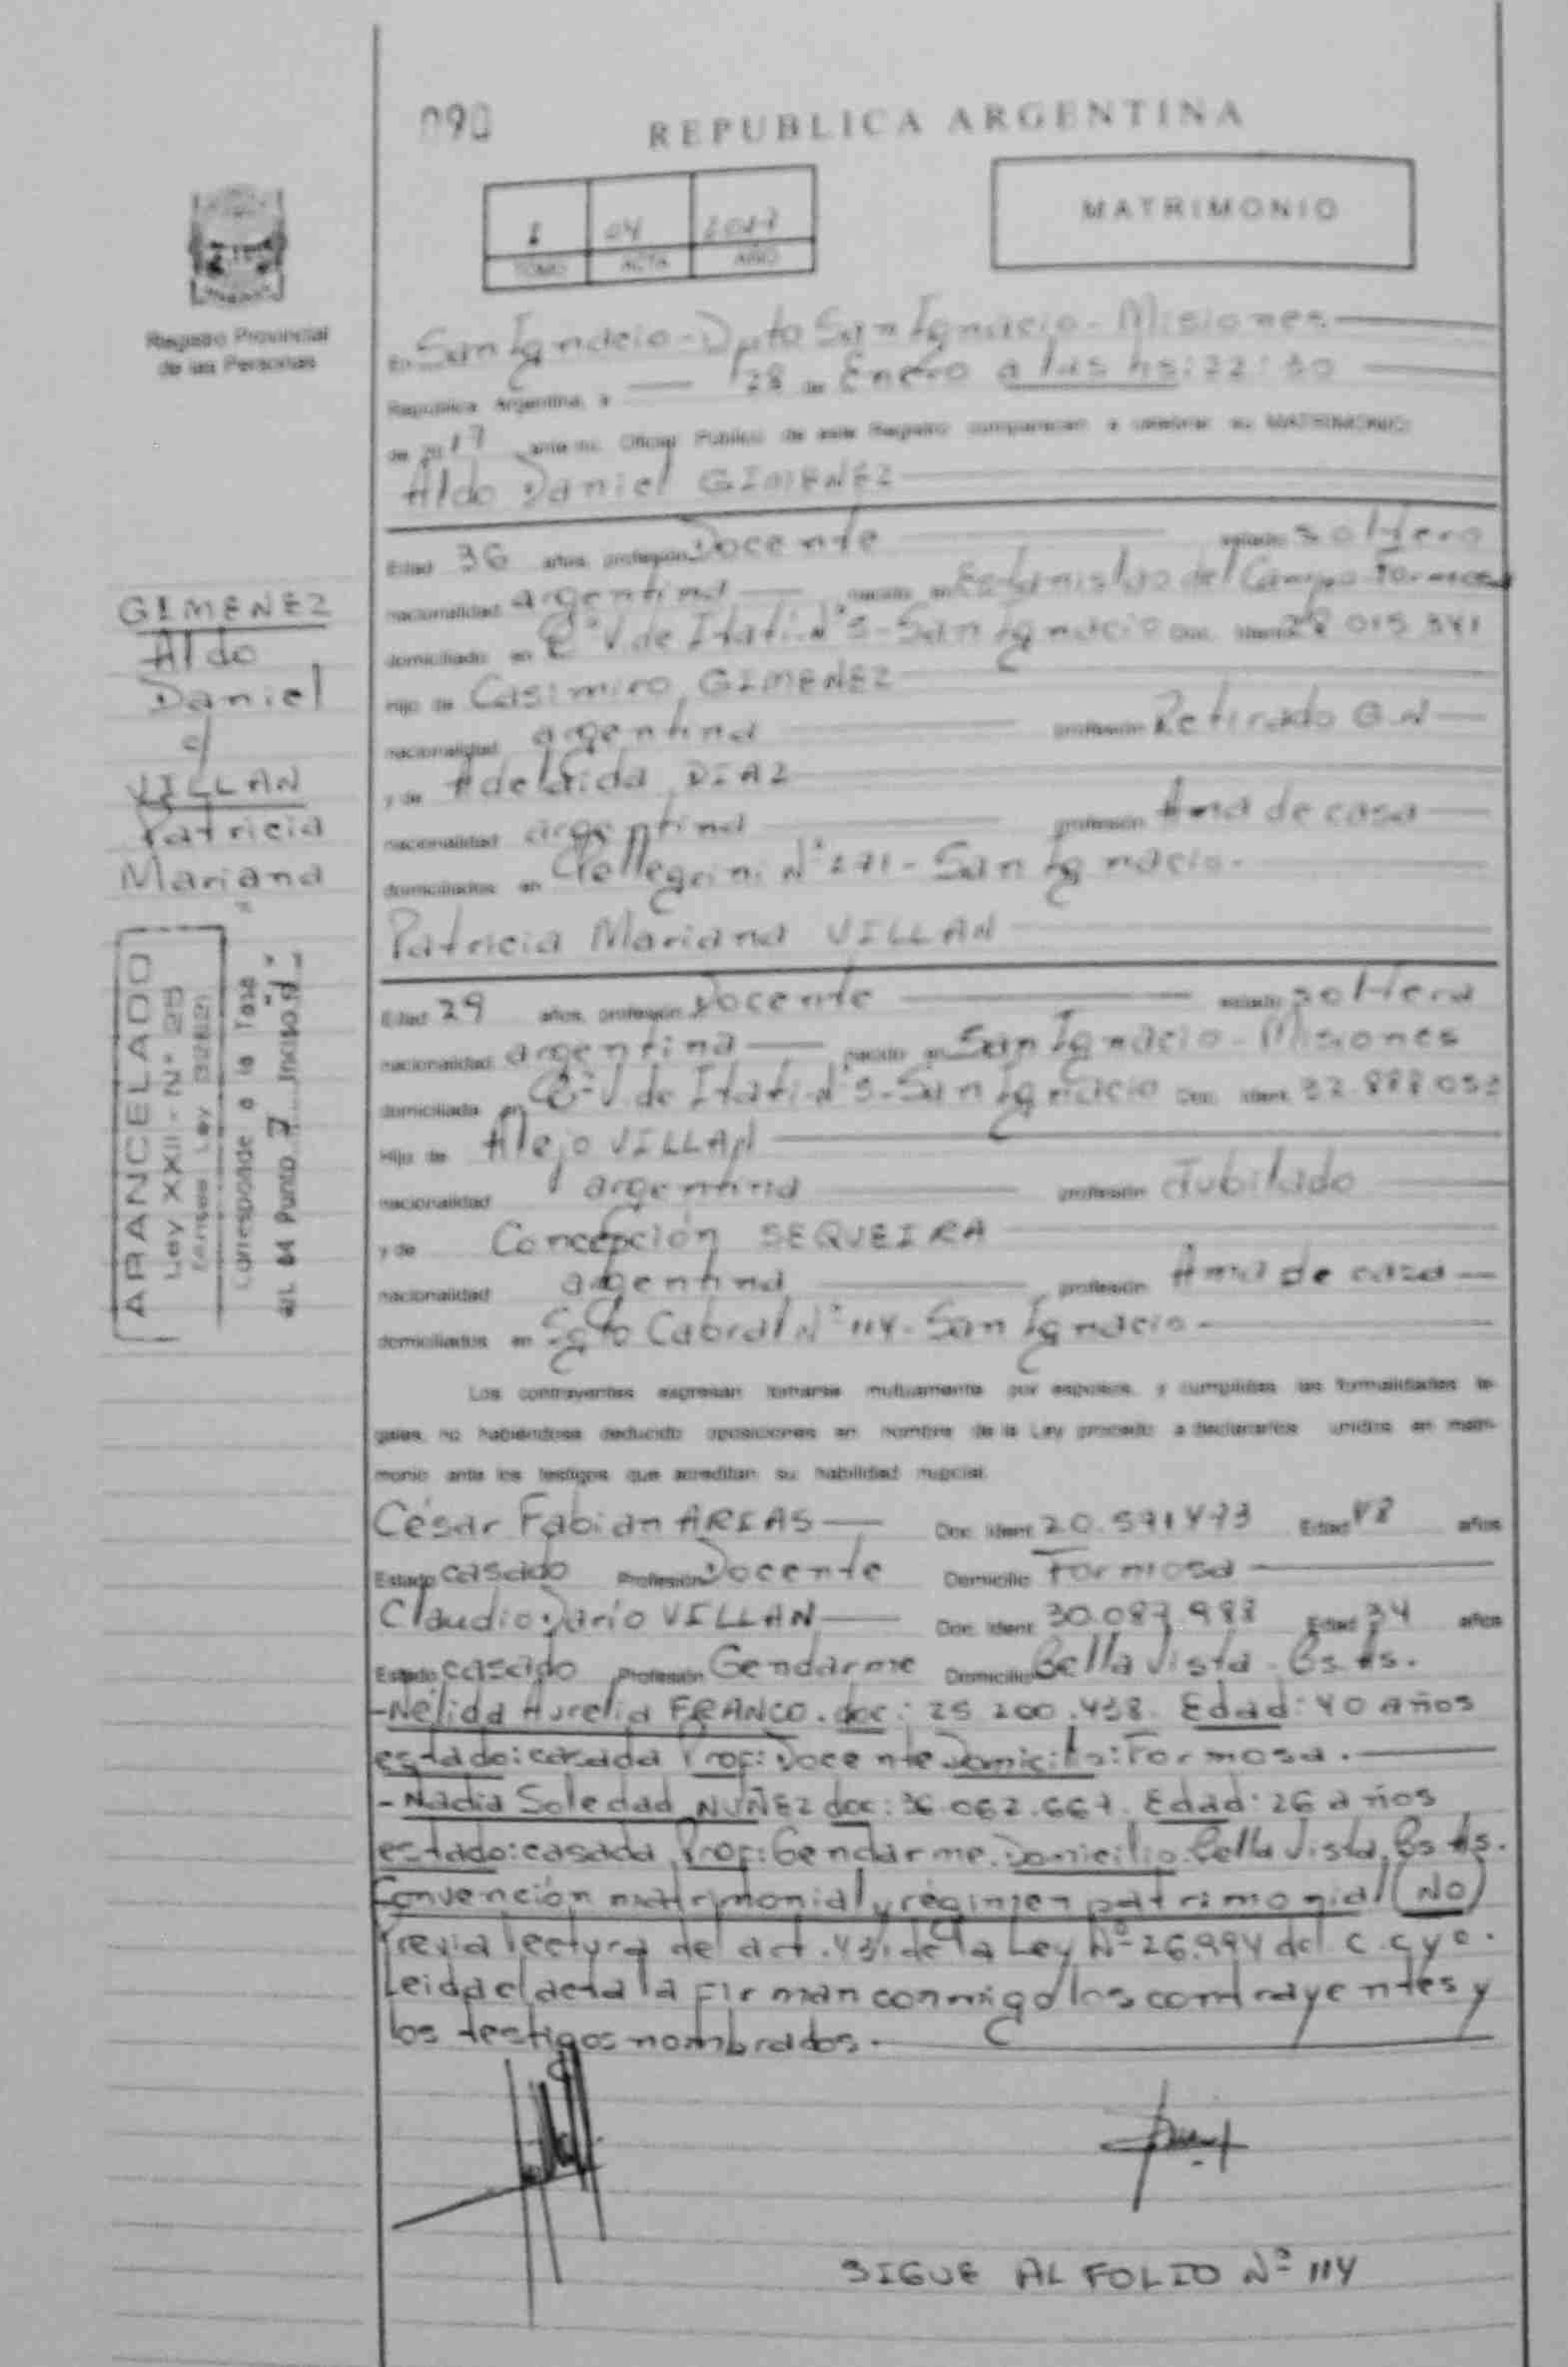 090
REPUBLICA ARGENTINA
1 04 2017
TOMO ACTA AÑO
MATRIMONIO
Registro Provincial
de las Personas
En San Ignacio - Dpto San Ignacio - Misiones
Republica Argentina, a 28 de Enero a las hs: 22:30
de 2017 ante mi, Oficial Público de este Registro comparecen a celebrar su MATRIMONIO:
Aldo Daniel GIMENEZ
Edad 36 años, profesión Docente estado soltero
nacionalidad argentina nacido en Estanislao del Campo - Formosa
domiciliado en V. de Itatí N° 5 - San Ignacio Doc. Ident.
Hijo de Casimiro GIMENEZ
nacionalidad argentina profesión Retirado G.N
y de Adelaida DIAZ
nacionalidad argentina profesión Ama de casa
domiciliados en Pellegrini N° 271 - San Ignacio -
Patricia Mariana VILLAN
Edad 29 años, profesión Docente estado soltera
nacionalidad argentina nacido en San Ignacio - Misiones
domiciliada en V. de Itatí N° 5 - San Ignacio Doc. Ident. 32.888.053
Hija de Alejo VILLAN
nacionalidad argentina profesión Jubilado
y de Concepción SEQUEIRA
nacionalidad argentina profesión Ama de casa
domiciliados en Sgto Cabral N° 114 - San Ignacio
Los contrayentes expresan tomarse mutuamente por esposos, y cumplidas las formalidades le-
gales, no habiéndose deducido oposiciones en nombre de la Ley procedo a declararlos unidos en matri-
monio ante los testigos que acreditan su habilidad nupcial.
César Fabian ARIAS Doc. Ident. 20.591473 Edad 48 años
Estado casado Profesión Docente Domicilio Formosa
Claudio Darío VILLAN Doc. Ident. 30.087.988 Edad 34 años
Estado casado Profesión Gendarme Domicilio Bella Vista - Bs As.
- Nélida Aurelia FRANCO. doc: 25 200.438. Edad: 40 años
estado: casada Prof: Docente Domicilio: Formosa.
- Nadia Soledad NUÑEZ doc: 36.062.667. Edad: 26 años
estado: casada Prof: Gendarme. Domicilio: Bella Vista, Bs As.
Convención matrimonial y régimen patrimonial (NO)
Previa lectura del art. 431 de la Ley N° 26.994 del C.C y C.
Leida el acta la firman conmigo los contrayentes y
los testigos nombrados.
SIGUE AL FOLIO N° 114
GIMENEZ
Aldo
Daniel
c/
VILLAN
Patricia
Mariana
ARANCELADO
Ley XXII - N° 25
Ley
Corresponde a la Tasa
Art. 64 Punto 7 Inciso